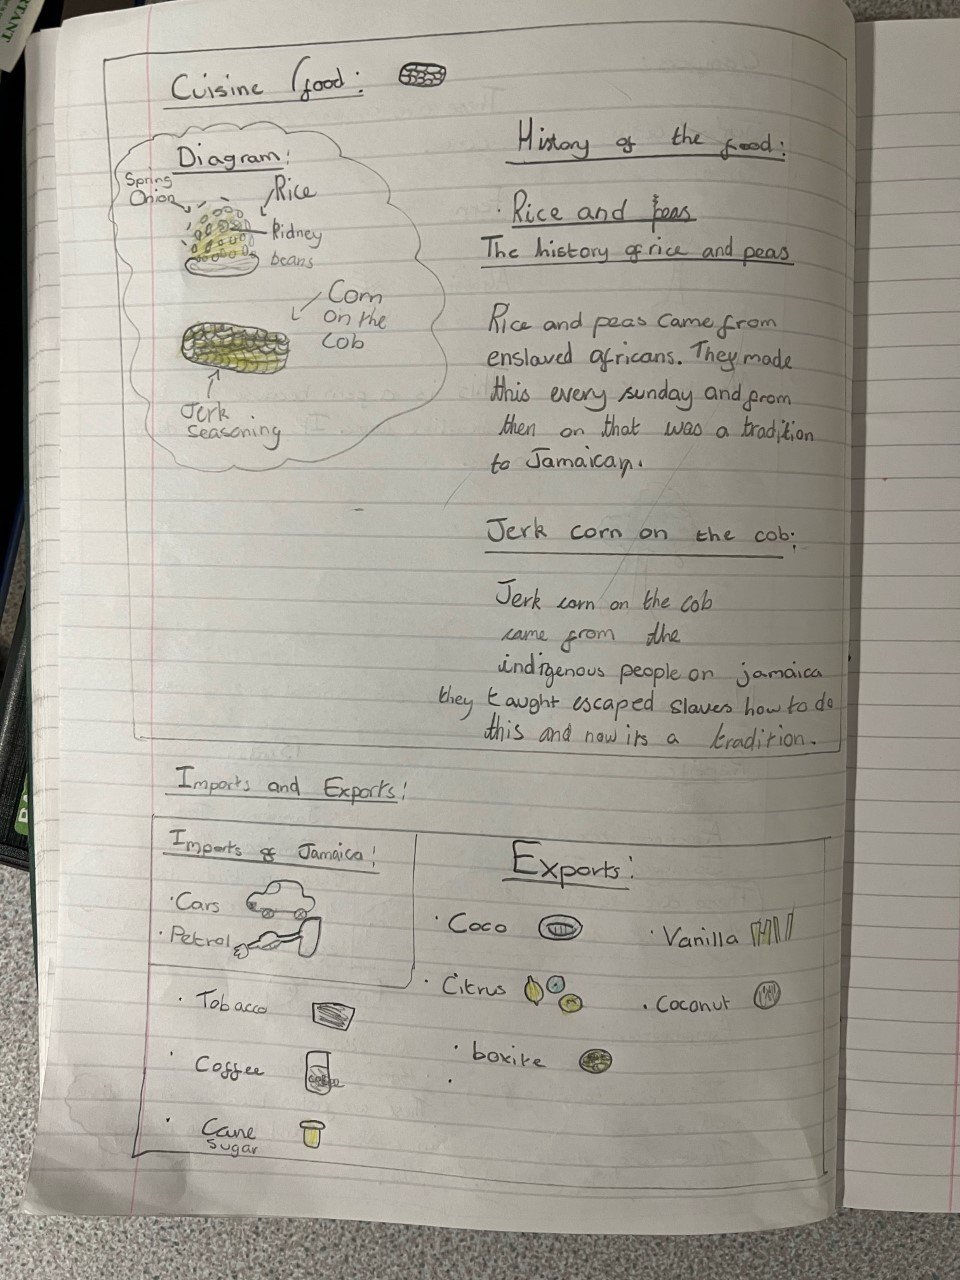 Cuisine (food:
Diagram:
Spring
Onion
Rice
Kidney
beans
Corn
on the
cob
Jerk
Seasoning
History of the food:
· Rice and peas
The history of rice and peas
Rice and peas came from
enslaved africans. They made
this every sunday and from
then on that was a tradition
to Jamaican.
Jerk corn on the cob:
Jerk corn on the cob
came from the
indigenous people on jamaica
they taught escaped slaves how to do
this and now its a tradition.
Imports and Exports:
Imports of Jamaica:
· Cars
· Petrol
Exports:
· Coco
· Vanilla
· Citrus
· Coconut
· boxite
· Tobacco
· Coffee
· Cane
sugar